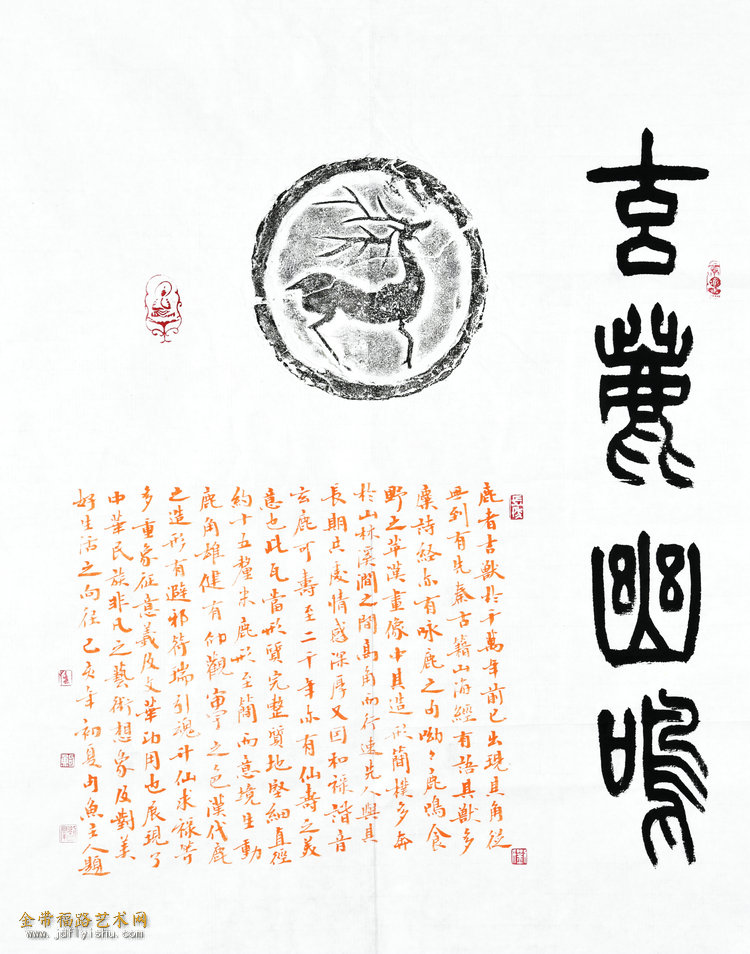 玄鹿幽鳴
鹿者古獸於千萬年前已出現且角從
無到有先秦古籍山海經有語其獸多
麋詩經亦有咏鹿之句呦々鹿鳴食
野之苹漢畫像中其造形簡樸多奔
於山林溪澗之間高角而行速先人與其
長期共處情感深厚又因和禄諧音
玄鹿可壽至二千年亦有仙壽之美
意也此瓦當形質完整質地堅細直徑
約十五釐米鹿形至簡而意境生動
鹿角雄健有仰觀宇之色漢代鹿
之造形有避邪符瑞引魂升仙求禄等
多重象征意義及文華功用也展現了
中華民族非凡之藝術想象及對美
好生活之向往己亥年初夏魚主人題
金带福路艺术网
www.jdflyishu.com